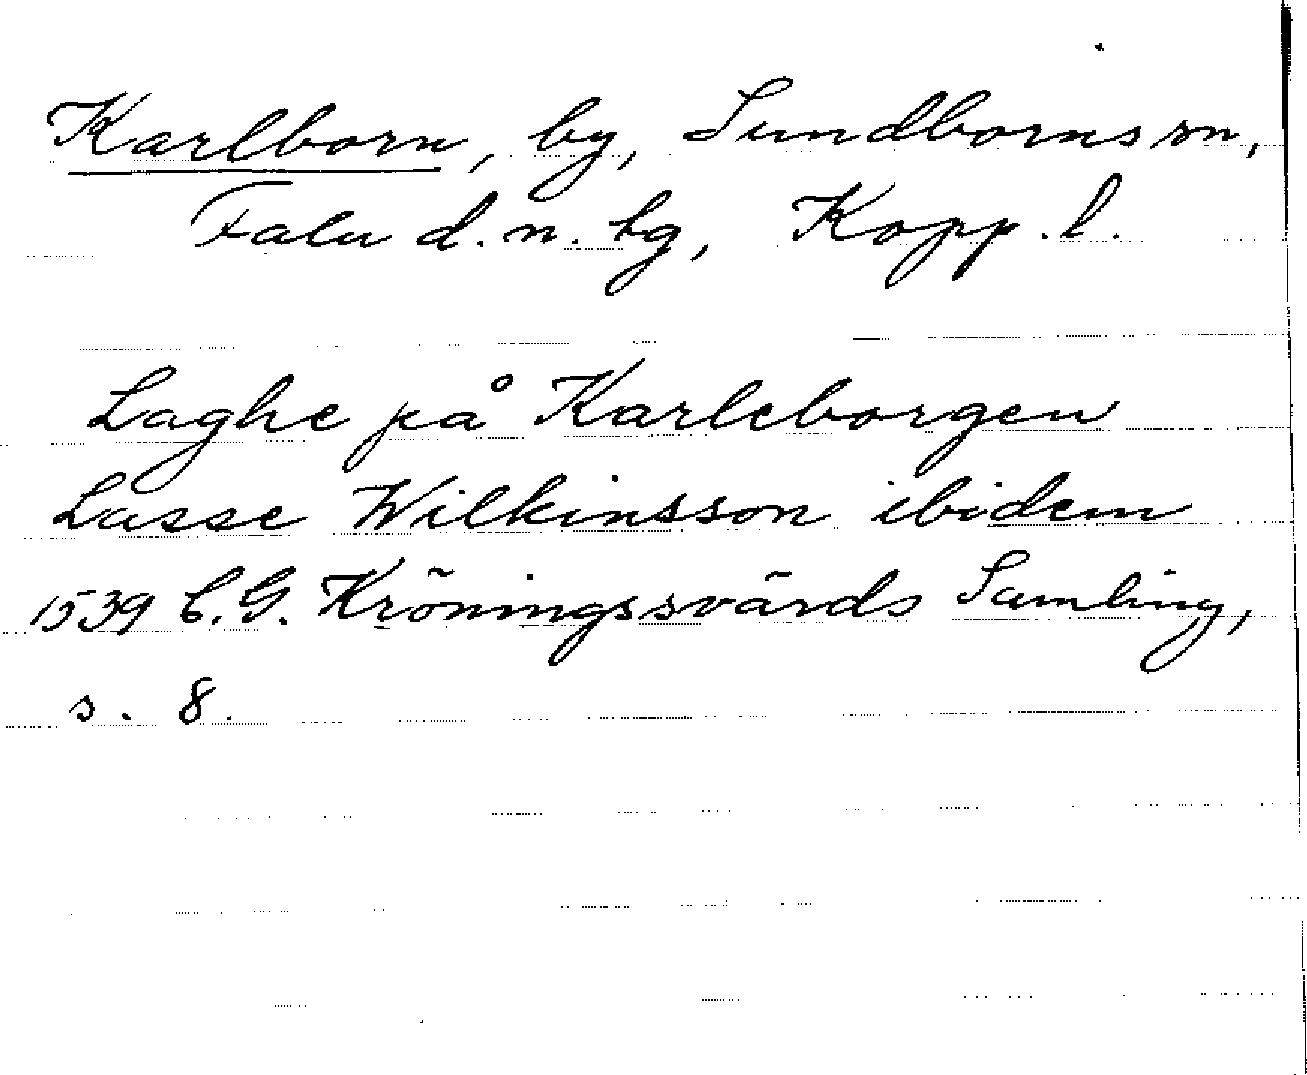 Karlborn, by, Sundborns sn,
Falu d. n. tg, Kopp. l.
Laghe på Karleborgen
Lasse Wilkinsson ibidem
1539 C. G. Kröningssvärds Samling,
s. 8.